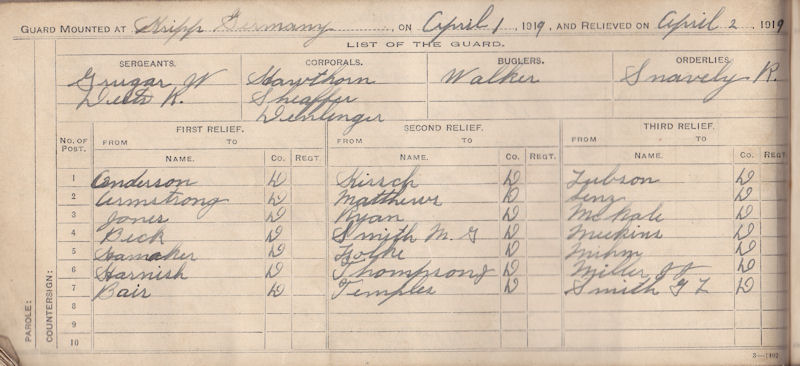 GUARD MOUNTED AT Kripp Germany, ON April 1, 1919, AND RELIEVED ON April 2, 1919
LIST OF THE GUARD.
SERGEANTS. CORPORALS. BUGLERS. ORDERLIES.
Grugar W Hawthorn Walker Snavely R.
Diets R. Sheaffer
Denlinger
FIRST RELIEF. SECOND RELIEF. THIRD RELIEF.
No. OF POST. FROM TO FROM TO FROM TO
NAME. Co. REGT. NAME. Co. REGT. NAME. Co. REGT
1 Anderson D Kirsch D D
2 Armstrong D Matthews D Lenz D
3 Jones D Ryan D McKale D
4 Beck D Smith M. G D Meekins D
5 Hamaker D D D
6 Harnish D Thompson D Miller D
7 Bair D Temples D Smith D
8
9
10
PAROLE:
COUNTERSIGN:
3—1402